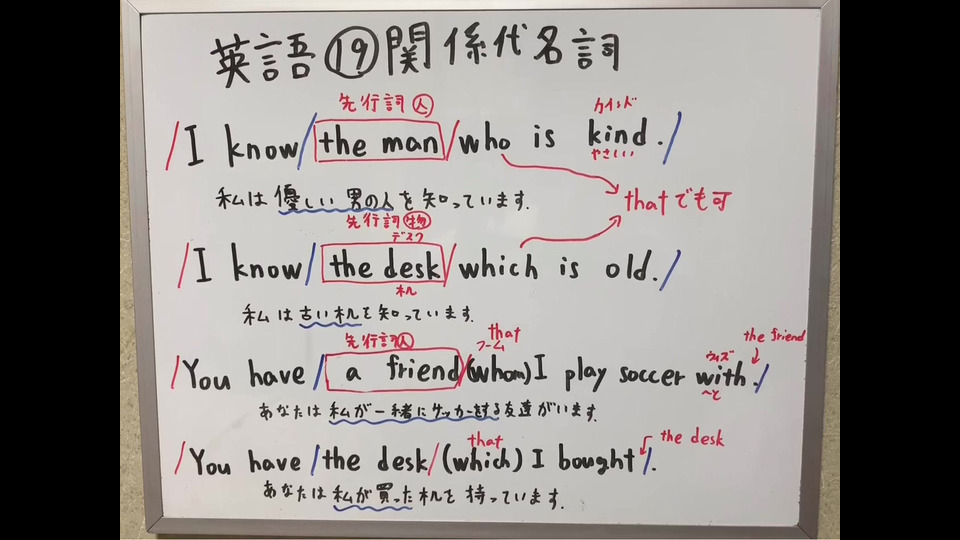 英語⑲関係代名詞
先行詞 人 カインド
/I know/the man/who is kind./
やさしい
私は優しい男の人を知っています.
thatでも可
先行詞 物
デスク
/I know/the desk/which is old./
机
私は古い机を知っています.
that the friend
先行詞 人 フーム ウィズ
/You have/a friend/(whom) I play soccer with./
〜と
あなたは私が一緒にサッカーをする友達がいます.
that the desk
/You have/the desk/(which) I bought/.
あなたは私が買った机を持っています.